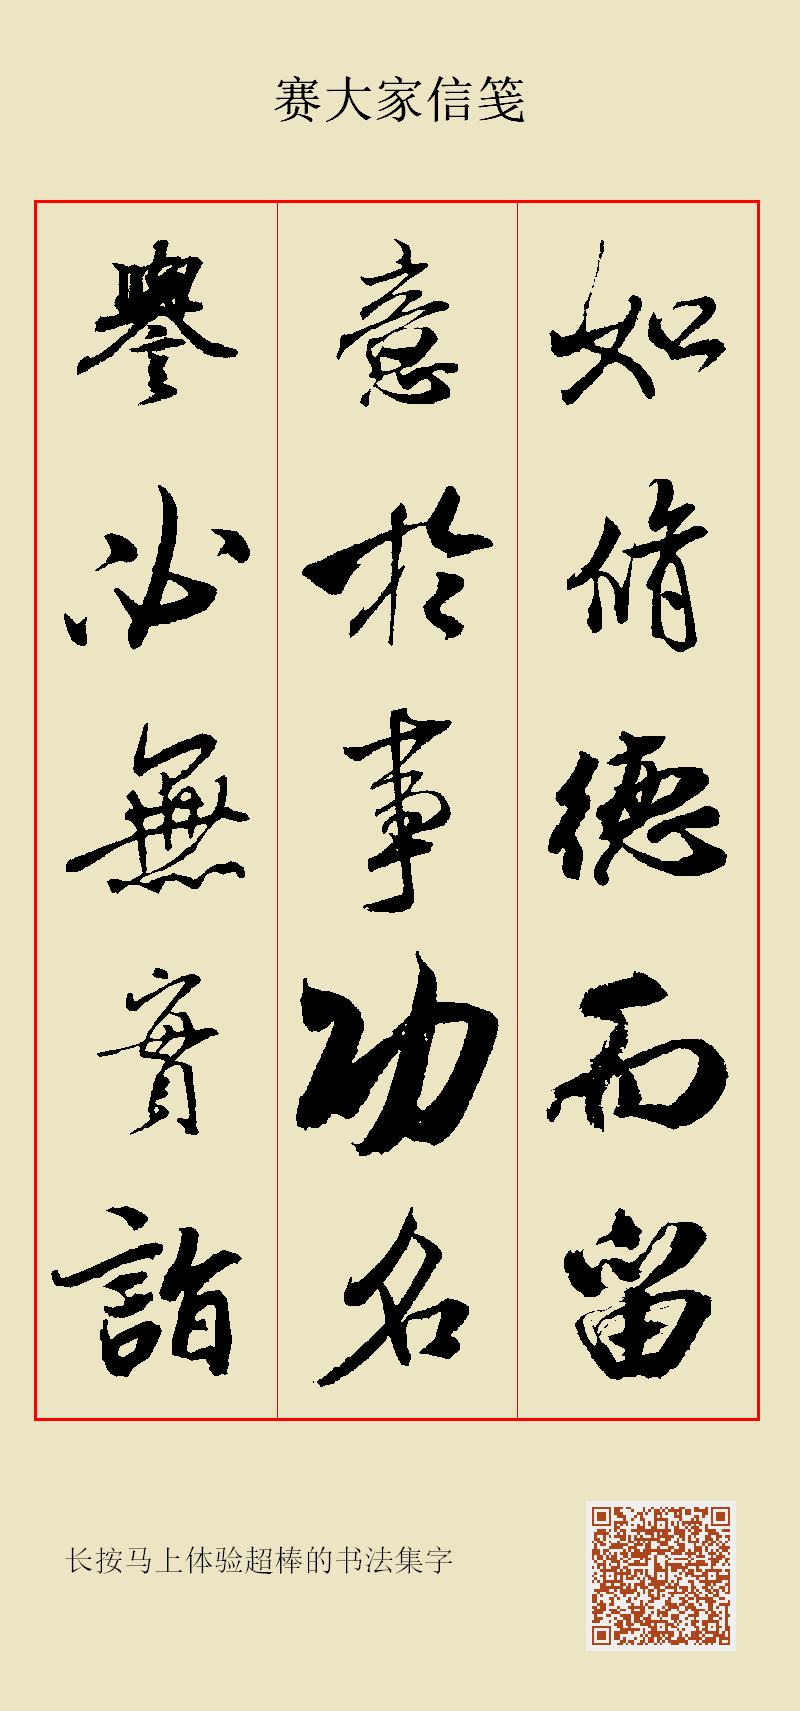 赛大家信笺
如脩德而留
意於事功名
譽必無實詣
长按马上体验超棒的书法集字